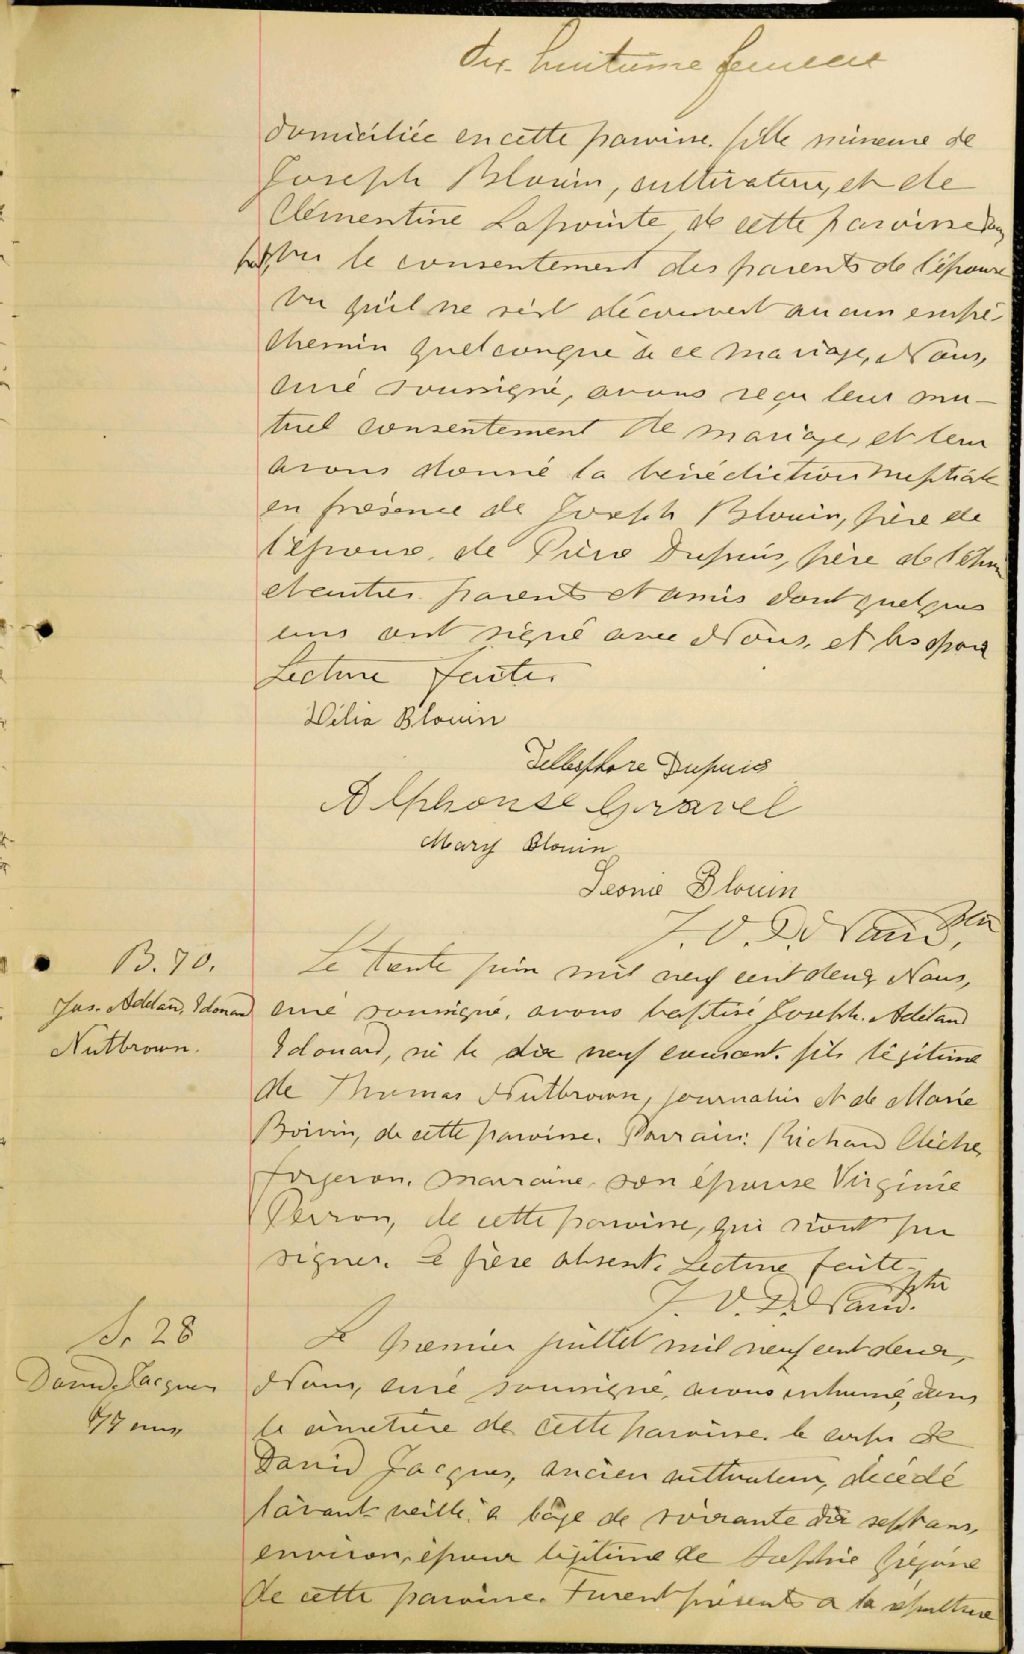 dix-huitième
domiciliée en cette paroisse. fille mineure de
Joseph Blouin, cultivateur, et de
Clémentine Lapointe de cette paroisse d'une
part, vu le consentement des parents de l'épouse
vu qu'il ne s'est découvert aucun empê-
chemin quelconque à ce mariage, Nous,
curé soussigné, avons reçu leur mu-
tuel consentement de mariage, et leur
avons donné la bénédiction nuptiale
en présence de Joseph Blouin, père de
l'épouse, de Pierre Dupuis, père de l'époux
et autres parents et amis dont quelques
uns ont signé avec Nous, et les époux
Lecture faite.
Délia Blouin
Tellesphore Dupuis
Alphonse Gravel
Mary Blouin
Leonie Blouin
ptre
B. 70.
Jos. Adélard, Edouard
Nutbrown.
Le trente juin mil neuf cent deux Nous,
curé soussigné, avons baptisé Joseph. Adélard
Edouard, né le dix neuf courant. fils légitime
de Thomas Nutbrown, journalier et de Marie
Boivin, de cette paroisse. Parrain: Richard Cliche,
forgeron. marraine, son épouse Virginie
Perron, de cette paroisse, qui n'ont pu
signer. Le père absent. Lecture faite.
ptre
S. 28
David Jacques
77 ans,
Le premier juillet mil neuf cent deux,
Nous, curé soussigné, avons inhumé, dans
le cimetière de cette paroisse. le corps de
David Jacques, ancien cultivateur, décédé
l'avant-veille, à l'âge de soixante dix sept ans,
environ, époux légitime de Sophie
de cette paroisse. Furent présents à la sépulture